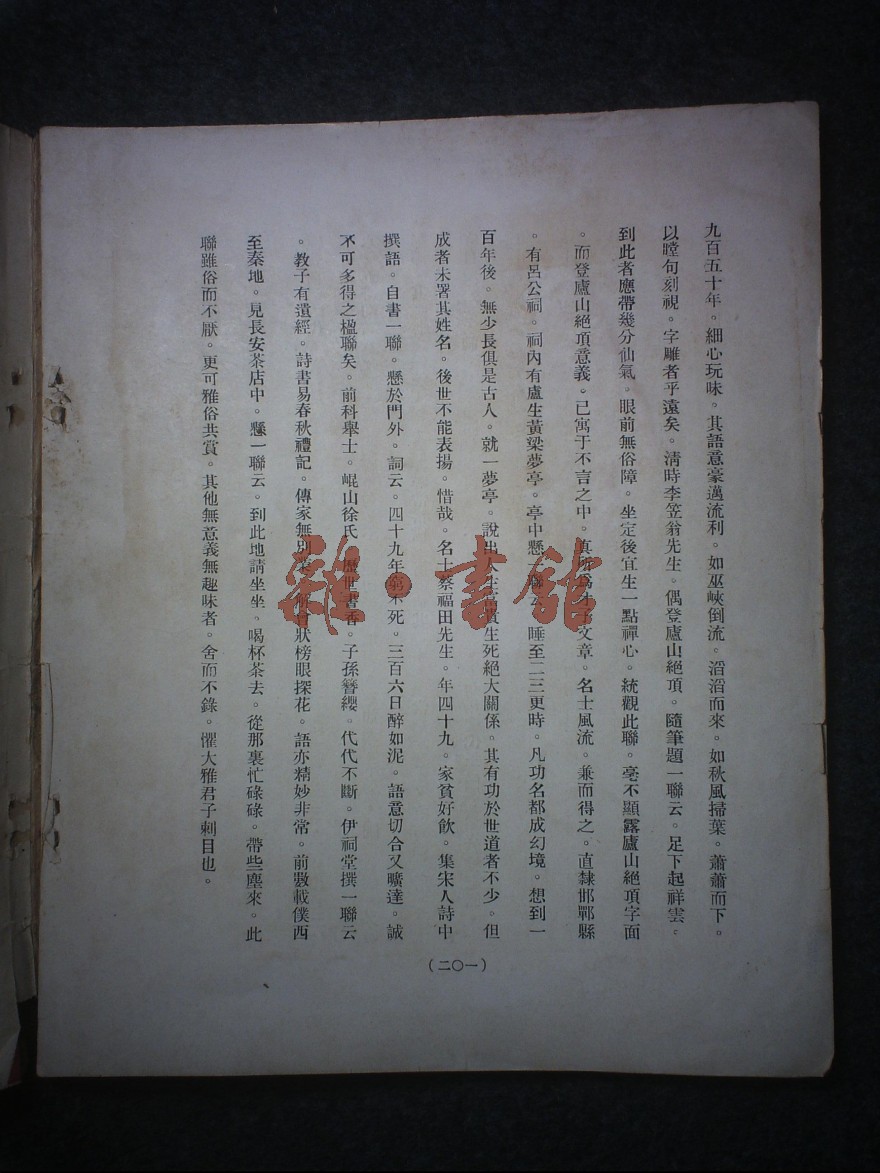 九百五十年。細心玩味。其語意豪邁流利。如巫峽倒流。滔滔而來。如秋風掃葉。蕭蕭而下。
以瞠句刻視。字雕者乎遠矣。清時李笠翁先生。偶登廬山絕頂。隨筆題一聯云。足下起祥雲。
到此者應帶幾分仙氣。眼前無俗障。坐定後宜生一點禪心。統觀此聯。毫不顯露廬山絕頂字面
。而登廬山絕頂意義。已寓于不言之中。真所為才子文章。名士風流。兼而得之。直隸邯鄲縣
。有呂公祠。祠內有盧生黃梁夢亭。亭中懸一聯云。睡至二三更時。凡功名都成幻境。想到一
百年後。無少長俱是古人。就一夢亭。說出人生富貴生死絕大關係。其有功於世道者不少。但
成者未署其姓名。後世不能表揚。惜哉。名士蔡福田先生。年四十九。家貧好飲。集宋人詩中
撰語。自書一聯。懸於門外。詞云。四十九年窮不死。三百六日醉如泥。語意切合又曠達。誠
不可多得之楹聯矣。前科舉士。崐山徐氏。歷世書香。子孫簪纓。代代不斷。伊祠堂撰一聯云
。教子有遺經。詩書易春秋禮記。傳家無別業。解會狀榜眼探花。語亦精妙非常。前數載僕西
至秦地。見長安茶店中。懸一聯云。到此地請坐坐。喝杯茶去。從那裏忙碌碌。帶些塵來。此
聯雖俗而不厭。更可雅俗共賞。其他無意義無趣味者。舍而不錄。懼大雅君子刺目也。
(二〇一)
雜·書館